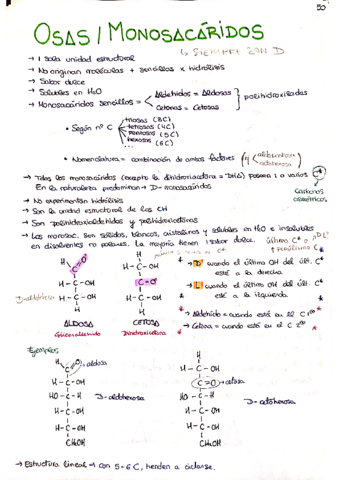 50
OSAS / MONOSACÁRIDOS
↳ SIEMPRE SON D
→ 1 sola unidad estructural
→ No originan moléculas + sencillas x hidrólisis
→ Sabor dulce
→ Solubles en H₂O
→ Monosacáridos sencillos = Aldehídos = Aldosas
Cetonas = Cetosas
polihidroxilados
• Según nº C
triosas (3C)
tetrosas (4C)
pentosas (5C)
hexosas (6C)
• Nomenclatura = combinación de ambos factores
→ Todos los monosacáridos (excepto la dihidroxiacetona = DHA) poseen 1 o varios C*
En la naturaleza predominan D- monosacáridos
carbonos
asimétricos
→ No experimentan hidrólisis
→ Son la unidad estructural de los CH
→ Son polihidroxialdehídos y polihidroxicetonas
→ Los monosac. son sólidos, blancos, cristalinos y solubles en H₂O e insolubles
en disolventes no polares. La mayoría tienen sabor dulce.
último C*
"D" cuando el último OH del últ. C*
esté a la derecha
"L" cuando el último OH del últ. C*
esté a la izquierda
* Aldehído = cuando está en el C 1rio *
* Cetona = cuando está en el C 2rio *
H
C=O
H-C-OH
H-C-OH
H
H
H-C-OH
C=O
H-C-OH
H
ALDOSA
CETOSA
Gliceraldehído
Dihidroxiacetona
Ejemplos:
H
C=O
→ aldosa
H-C-OH
HO-C-H
H-C-OH
H-C-OH
CH₂OH
D-aldohexosa
H
H-C-OH
C=O
→ cetosa
HO-C-H
H-C-OH
H-C-OH
CH₂OH
D-cetohexosa
→ Estructura lineal → con 5-6 C, tienden a ciclarse.